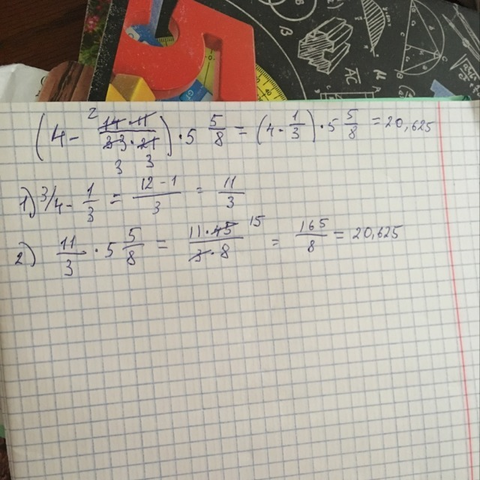 (4 - 14·11/33·21) · 5 5/8 = (4 · 1/3) · 5 5/8 = 20,625
2
3 3
1) 3/4 - 1/3 = 12-1/3 = 11/3
2) 11/3 · 5 5/8 = 11·45/3·8 15 = 165/8 = 20,625